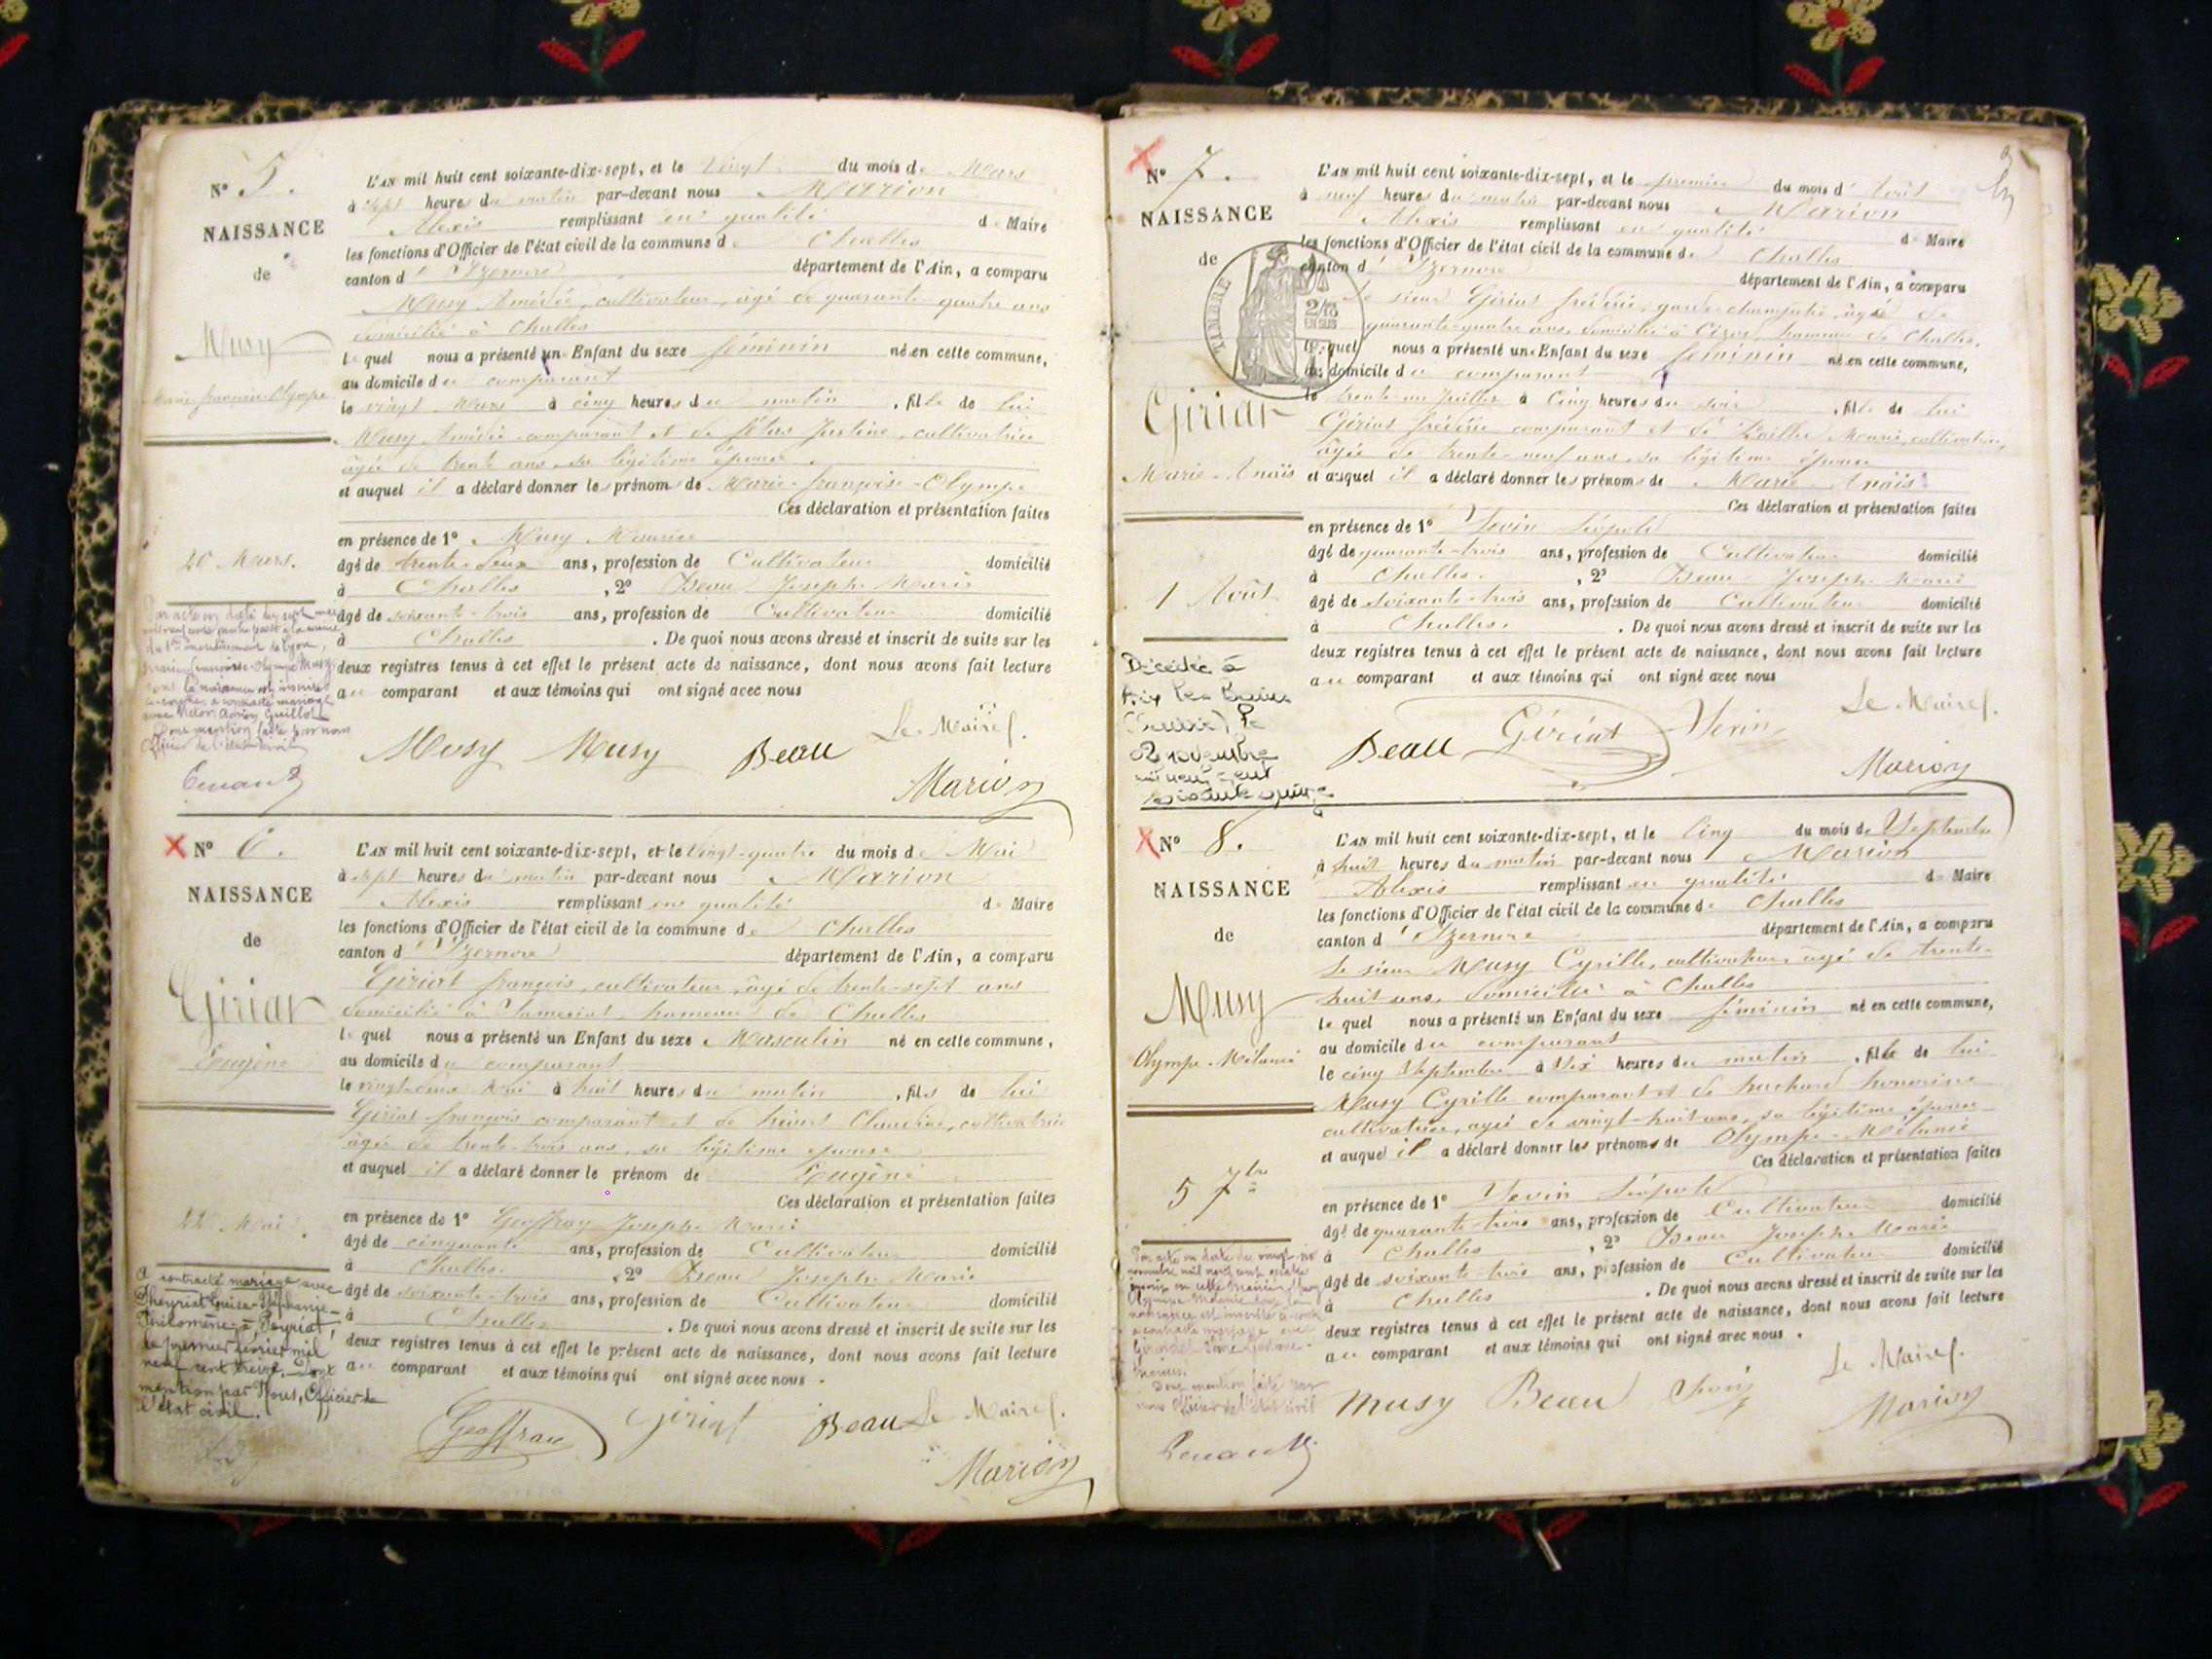 N° 5.
NAISSANCE
de
Musy
Marie françoise Olympe
20 Mars.
L'AN mil huit cent soixante-dix-sept, et le vingt du mois de Mars
à sept heures du matin par-devant nous Marion
Alexis remplissant en qualité de Maire
les fonctions d'Officier de l'état civil de la commune de Challes
canton d'Izernore département de l'Ain, a comparu
Musy Amédée, cultivateur, âgé de quarante quatre ans
domicilié à Challes
lequel nous a présenté un Enfant du sexe féminin né en cette commune,
au domicile du comparant
le vingt Mars à cinq heures du matin, fille de lui
Musy Amédée comparant et de Justine, cultivatrice
âgée de trente ans, sa légitime épouse
et auquel il a déclaré donner les prénoms de Marie-françoise-Olympe
Ces déclaration et présentation faites
en présence de 1° Musy Maurice
âgé de trente-deux ans, profession de Cultivateur domicilié
à Challes, 2° Beau Joseph-Marie
âgé de soixante-trois ans, profession de Cultivateur domicilié
à Challes. De quoi nous avons dressé et inscrit de suite sur les
deux registres tenus à cet effet le présent acte de naissance, dont nous avons fait lecture
au comparant et aux témoins qui ont signé avec nous
Par acte en date du sept
de Lyon,
Marie françoise-Olympe Musy
dont la naissance est inscrite
ci-contre, a contracté mariage
avec Guillot
Dont mention faite par nous
Officier de l'état civil
Musy Musy Beau Le Maire
Marion
N° 6.
NAISSANCE
de
Giriat
Eugène
22 Mai
L'AN mil huit cent soixante-dix-sept, et le vingt-quatre du mois de Mai
à sept heures du matin par-devant nous Marion
Alexis remplissant en qualité de Maire
les fonctions d'Officier de l'état civil de la commune de Challes
canton d'Izernore département de l'Ain, a comparu
Giriat françois, cultivateur, âgé de trente-sept ans
domicilié à hameau de Challes
lequel nous a présenté un Enfant du sexe Masculin né en cette commune,
au domicile du comparant
le vingt-deux Mai à huit heures du matin, fils de lui
Giriat françois comparant et de Claudine, cultivatrice
âgée de trente-trois ans, sa légitime épouse
et auquel il a déclaré donner le prénom de Eugène
Ces déclaration et présentation faites
en présence de 1° Geoffray Joseph Marie
âgé de cinquante ans, profession de Cultivateur domicilié
à Challes, 2° Beau Joseph-Marie
âgé de soixante-trois ans, profession de Cultivateur domicilié
à Challes. De quoi nous avons dressé et inscrit de suite sur les
deux registres tenus à cet effet le présent acte de naissance, dont nous avons fait lecture
au comparant et aux témoins qui ont signé avec nous.
A contracté mariage avec
Louise-Stéphanie-
Philomène à Peyriat,
le premier février mil
neuf cent treize. Dont
mention par Nous, Officier de
l'état civil.
Geoffray Giriat Beau Le Maire
Marion
N° 7.
NAISSANCE
de
Giriat
Marie-Anaïs
1 Août
TIMBRE
L'AN mil huit cent soixante-dix-sept, et le premier du mois d'Août
à neuf heures du matin par-devant nous Marion
Alexis remplissant en qualité de Maire
les fonctions d'Officier de l'état civil de la commune de Challes
canton d'Izernore département de l'Ain, a comparu
le sieur Giriat frédéric, garde-champêtre, âgé de
quarante-quatre ans, domicilié à hameau de Challes.
lequel nous a présenté un Enfant du sexe féminin né en cette commune,
au domicile du comparant
le trente-un Juillet à Cinq heures du soir, fille de lui
Giriat frédéric comparant et de Marie, cultivatrice,
âgée de trente-neuf ans, sa légitime épouse
et auquel il a déclaré donner les prénoms de Marie-Anaïs
Ces déclaration et présentation faites
en présence de 1° Léopold
âgé de quarante-trois ans, profession de Cultivateur domicilié
à Challes, 2° Beau Joseph-Marie
âgé de soixante-trois ans, profession de Cultivateur domicilié
à Challes. De quoi nous avons dressé et inscrit de suite sur les
deux registres tenus à cet effet le présent acte de naissance, dont nous avons fait lecture
au comparant et aux témoins qui ont signé avec nous
Décédée à
Aix les Bains
(Savoie) le
02 novembre
mil neuf cent
soixante quinze
Beau Giriat Le Maire
Marion
N° 8.
NAISSANCE
de
Musy
Olympe-Mélanie
5 7bre
L'AN mil huit cent soixante-dix-sept, et le Cinq du mois de Septembre
à huit heures du matin par-devant nous Marion
Alexis remplissant en qualité de Maire
les fonctions d'Officier de l'état civil de la commune de Challes
canton d'Izernore département de l'Ain, a comparu
le sieur Musy Cyrille, cultivateur, âgé de trente-
huit ans, domicilié à Challes
lequel nous a présenté un Enfant du sexe féminin né en cette commune,
au domicile du comparant
le cinq Septembre à Six heures du matin, fille de lui
Musy Cyrille comparant et de honorine
cultivatrice, âgée de vingt-huit ans, sa légitime épouse
et auquel il a déclaré donner les prénoms de Olympe-Mélanie
Ces déclaration et présentation faites
en présence de 1° Léopold
âgé de quarante-trois ans, profession de Cultivateur domicilié
à Challes, 2° Beau Joseph-Marie
âgé de soixante-trois ans, profession de Cultivateur domicilié
à Challes. De quoi nous avons dressé et inscrit de suite sur les
deux registres tenus à cet effet le présent acte de naissance, dont nous avons fait lecture
au comparant et aux témoins qui ont signé avec nous.
Par acte en date du vingt
novembre mil neuf cent quatre
naissance est inscrite
a contracté mariage avec
Dont mention faite par
nous Officier de l'état civil
Musy Beau Le Maire
Marion